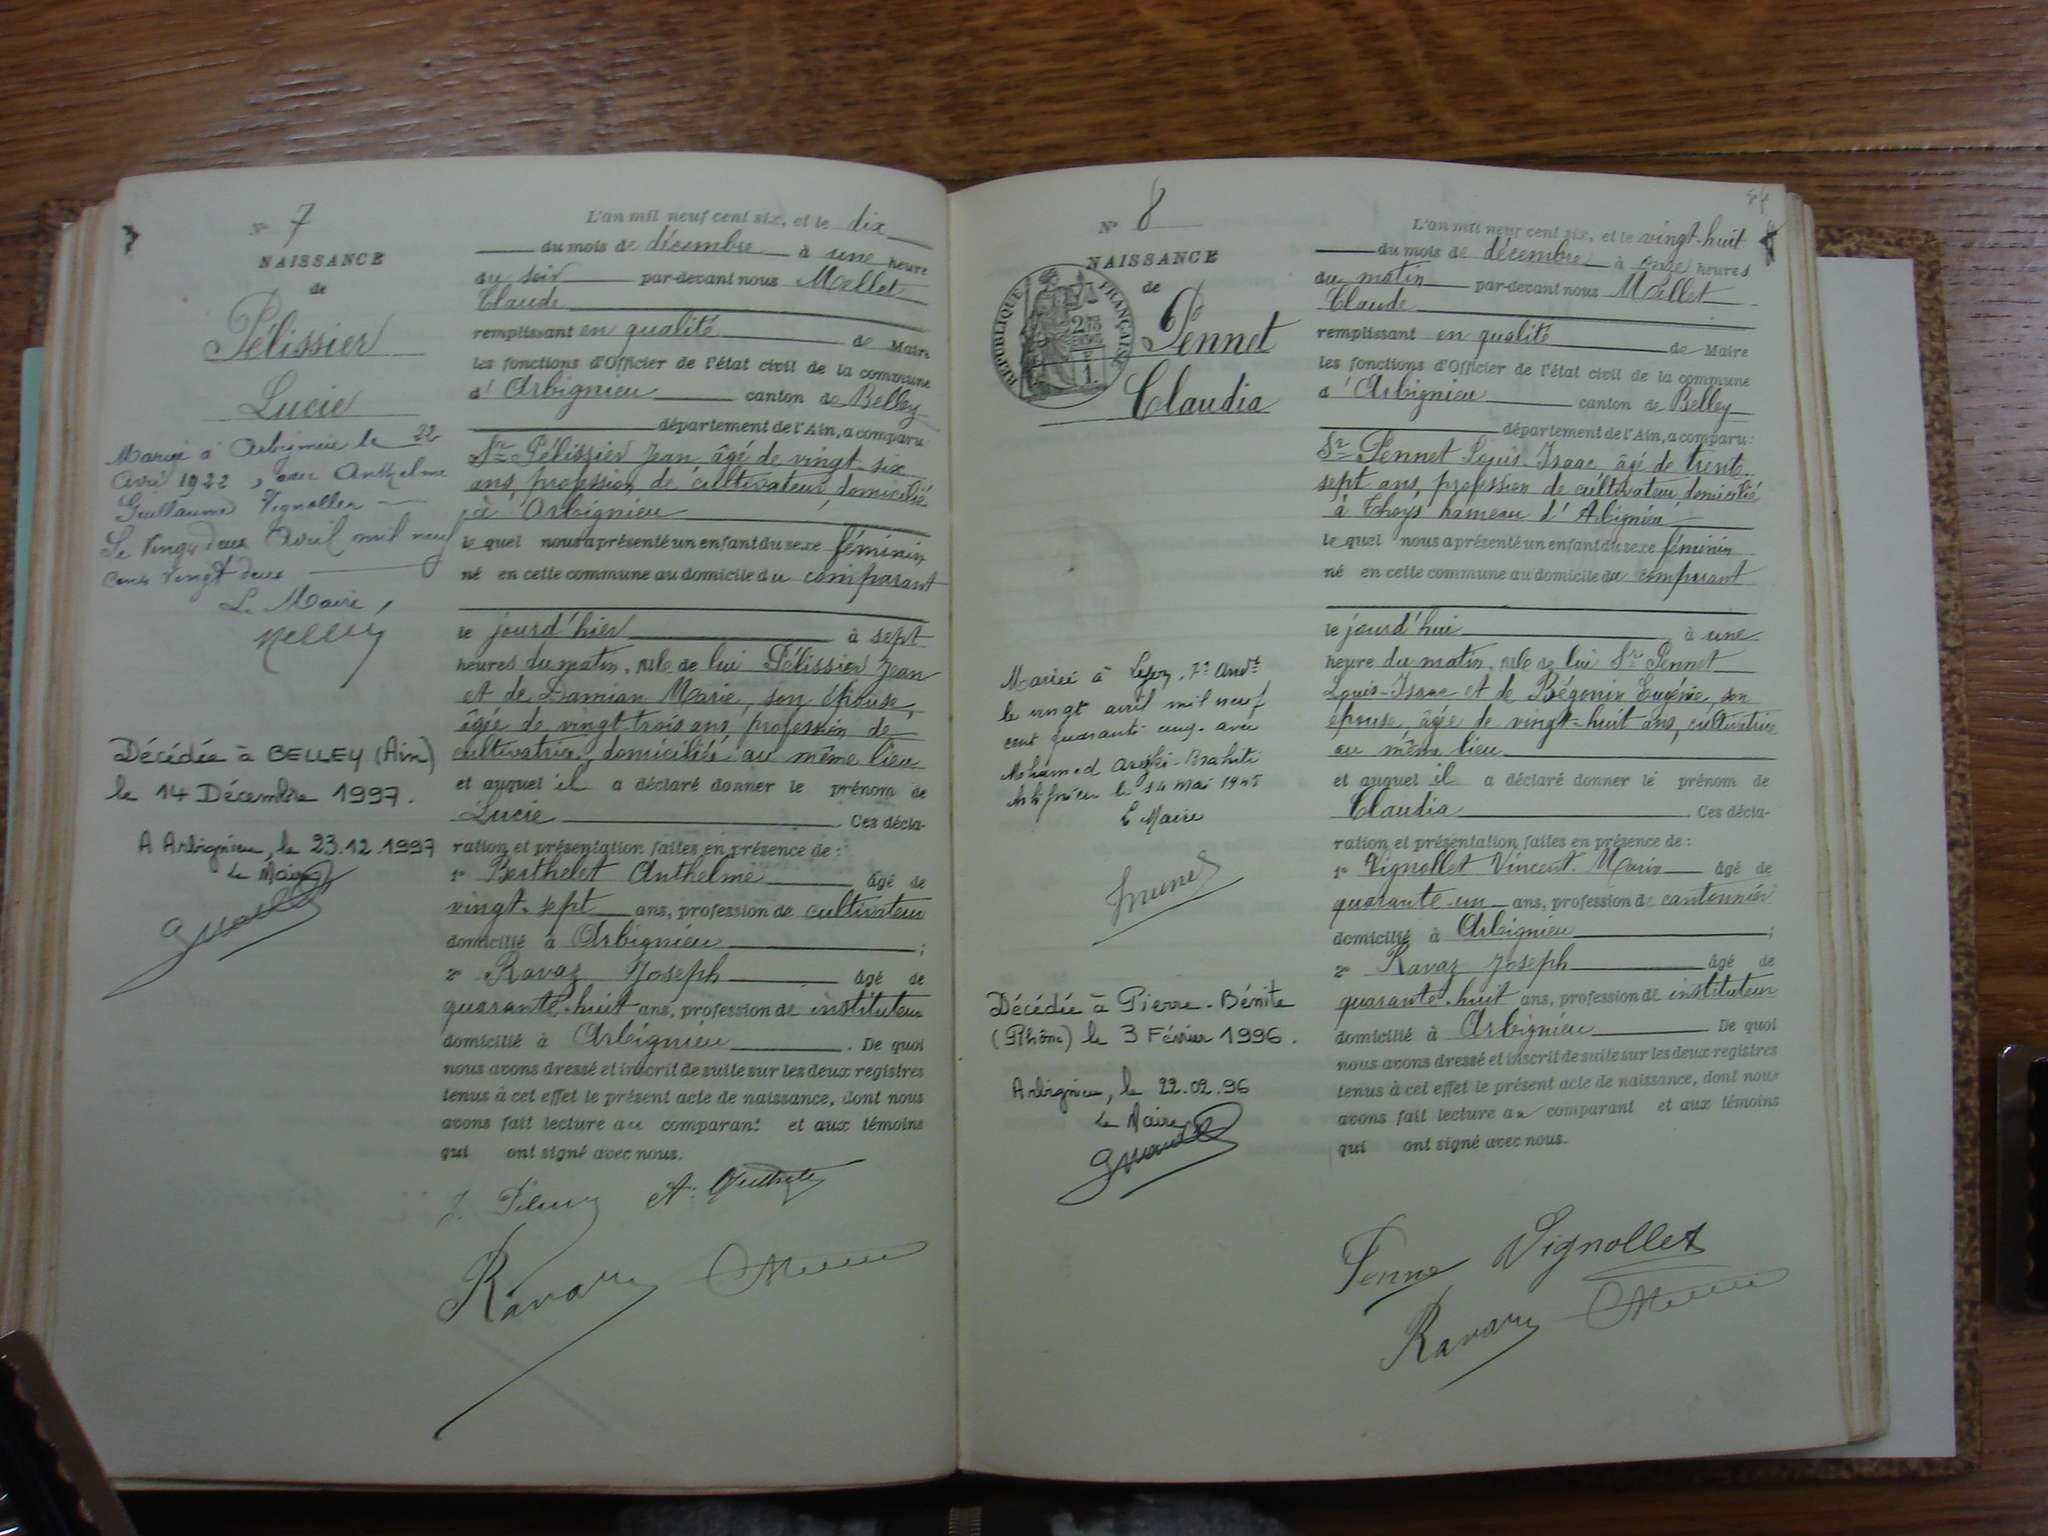 N° 7
NAISSANCE
de
Pélissier
Lucie
Mariée à Arbignieu le 22
Avril 1922, avec Anthelme
Guillaume Vignollet
Le Vingt deux Avril mil neuf
cent vingt deux
Le Maire,
Décédée à BELLEY (Ain)
le 14 Décembre 1997.
A Arbignieu, le 23.12.1997
Le Maire
L'an mil neuf cent six, et le dix
du mois de décembre à une heure
du soir par-devant nous Mellet
Claude
remplissant en qualité de Maire
les fonctions d'Officier de l'état civil de la commune
d'Arbignieu canton de Belley
département de l'Ain, a comparu:
Sr Pélissier Jean âgé de vingt-six
ans, profession de cultivateur, domicilié
à Arbignieu
le quel nous a présenté un enfant du sexe féminin
né en cette commune au domicile du comparant
le jourd'hier à sept
heures du matin, née de lui Pélissier Jean
et de Damian Marie, son épouse,
âgée de vingt-trois ans, profession de
cultivatrice, domiciliés au même lieu
et auquel il a déclaré donner le prénom de
Lucie Ces décla-
ration et présentation faites en présence de:
1° Berthelet Anthelme âgé de
vingt-sept ans, profession de cultivateur
domicilié à Arbignieu;
2° Ravaz Joseph âgé de
quarante-huit ans, profession de instituteur
domicilié à Arbignieu. De quoi
nous avons dressé et inscrit de suite sur les deux registres
tenus à cet effet le présent acte de naissance, dont nous
avons fait lecture au comparant et aux témoins
qui ont signé avec nous.
Ravaz
N° 8
NAISSANCE
de
RÉPUBLIQUE FRANÇAISE
Pennet
Claudia
Mariée à Lyon, 7e Arrdt
le vingt avril mil neuf
cent quarante cinq avec
Mohamed
Arbignieu le 14 mai 1945
Le Maire
Décédée à Pierre-Bénite
(Rhône) le 3 Février 1996.
Arbignieu, le 22.02.96
Le Maire
L'an mil neuf cent six, et le vingt-huit
du mois de décembre à onze heures
du matin par-devant nous Mellet
Claude
remplissant en qualité de Maire
les fonctions d'Officier de l'état civil de la commune
d'Arbignieu canton de Belley
département de l'Ain, a comparu:
Sr Pennet Louis-Isaac, âgé de trente
sept ans, profession de cultivateur, domicilié
à Thoys hameau d'Arbignieu
le quel nous a présenté un enfant du sexe féminin
né en cette commune au domicile du comparant
le jourd'hui à une
heure du matin, née de lui Sr Pennet
Louis-Isaac et de Bégonin Eugénie, son
épouse, âgée de vingt-huit ans, cultivatrice
au même lieu
et auquel il a déclaré donner le prénom de
Claudia. Ces décla-
ration et présentation faites en présence de:
1° Vignollet Vincent-Marie âgé de
quarante-un ans, profession de cantonnier
domicilié à Arbignieu;
2° Ravaz Joseph âgé de
quarante-huit ans, profession de instituteur
domicilié à Arbignieu. De quoi
nous avons dressé et inscrit de suite sur les deux registres
tenus à cet effet le présent acte de naissance, dont nous
avons fait lecture au comparant et aux témoins
qui ont signé avec nous.
Vignollet
Ravaz